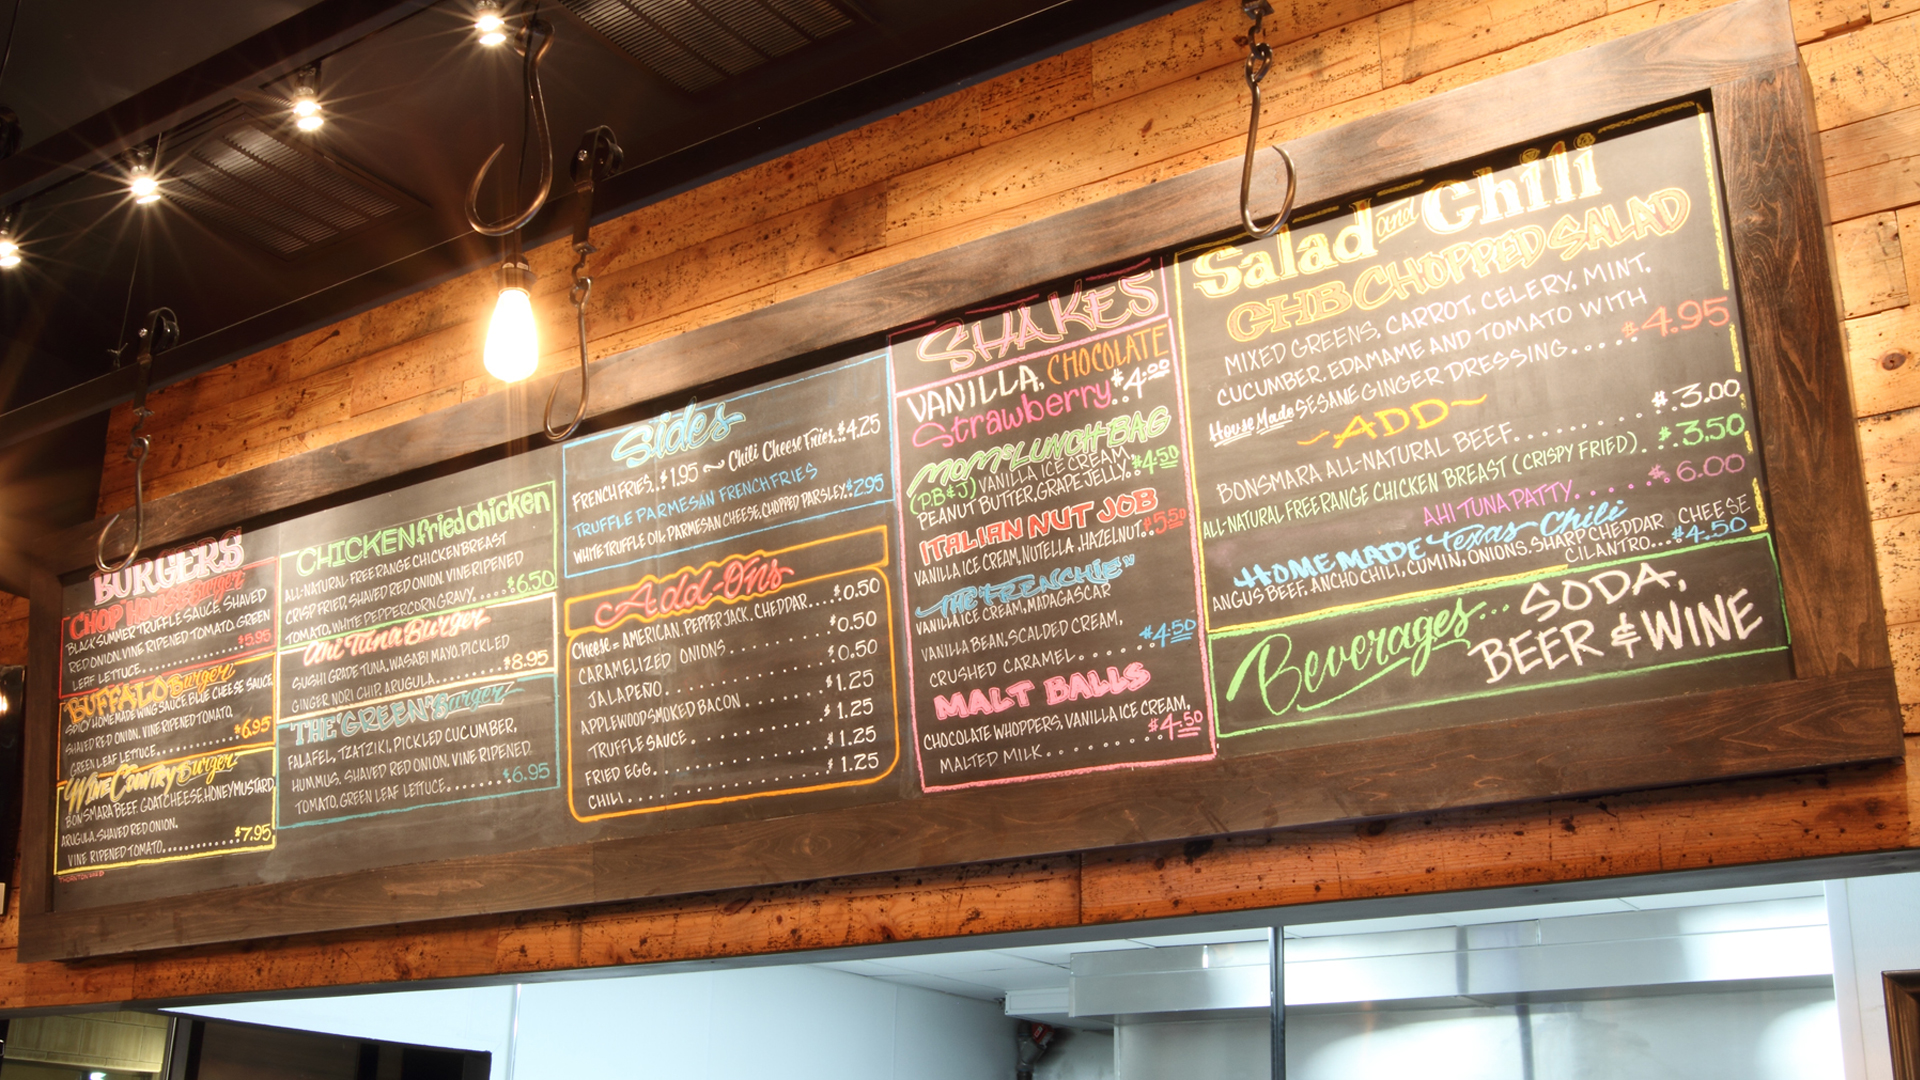 BURGERS
CHOP HOUSE Burger
BLACK SUMMER TRUFFLE SAUCE, SHAVED
RED ONION, VINE RIPENED TOMATO, GREEN
LEAF LETTUCE................ $5.95
BUFFALO Burger
SPICY HOMEMADE WING SAUCE, BLUE CHEESE SAUCE,
SHAVED RED ONION, VINE RIPENED TOMATO,
GREEN LEAF LETTUCE................ $6.95
WINE COUNTRY Burger
BONSMARA BEEF, GOAT CHEESE, HONEY MUSTARD,
ARUGULA, SHAVED RED ONION,
VINE RIPENED TOMATO............. $7.95
CHICKEN fried chicken
ALL-NATURAL FREE RANGE CHICKEN BREAST
CRISP FRIED, SHAVED RED ONION, VINE RIPENED
TOMATO, WHITE PEPPERCORN GRAVY..... $6.50
Ahi Tuna Burger
SUSHI GRADE TUNA, WASABI MAYO, PICKLED
GINGER, NORI CHIP, ARUGULA......... $8.95
THE "GREEN" Burger
FALAFEL, TZATZIKI, PICKLED CUCUMBER,
HUMMUS, SHAVED RED ONION, VINE RIPENED
TOMATO, GREEN LEAF LETTUCE......... $6.95
Sides
FRENCH FRIES.. $1.95 ~ Chili Cheese Fries.. $4.25
TRUFFLE PARMESAN FRENCH FRIES
WHITE TRUFFLE OIL, PARMESAN CHEESE, CHOPPED PARSLEY.. $2.95
Add-Ons
Cheese = AMERICAN, PEPPER JACK, CHEDDAR.... $0.50
CARAMELIZED ONIONS........ $0.50
JALAPEÑO............ $0.50
APPLEWOOD SMOKED BACON........ $1.25
TRUFFLE SAUCE............ $1.25
FRIED EGG............... $1.25
CHILI................. $1.25
SHAKES
VANILLA, CHOCOLATE
Strawberry.. $4.00
MOM'S LUNCH BAG
(P.B & J) VANILLA ICE CREAM,
PEANUT BUTTER, GRAPE JELLY.. $4.50
ITALIAN NUT JOB
VANILLA ICE CREAM, NUTELLA, HAZELNUT.. $5.50
"THE FRENCHIE"
VANILLA ICE CREAM, MADAGASCAR
VANILLA BEAN, SCALDED CREAM,
CRUSHED CARAMEL........ $4.50
MALT BALLS
CHOCOLATE WHOPPERS, VANILLA ICE CREAM,
MALTED MILK.......... $4.50
Salad and Chili
GHB CHOPPED SALAD
MIXED GREENS, CARROT, CELERY, MINT,
CUCUMBER, EDAMAME AND TOMATO WITH
House Made SESAME GINGER DRESSING..... $4.95
~ADD~
BONSMARA ALL-NATURAL BEEF............ $3.00
ALL-NATURAL FREE RANGE CHICKEN BREAST (CRISPY FRIED). $3.50
AHI TUNA PATTY....... $6.00
HOMEMADE Texas Chili
ANGUS BEEF, ANCHO CHILI, CUMIN, ONIONS, SHARP CHEDDAR CHEESE
CILANTRO... $4.50
Beverages... SODA,
BEER & WINE